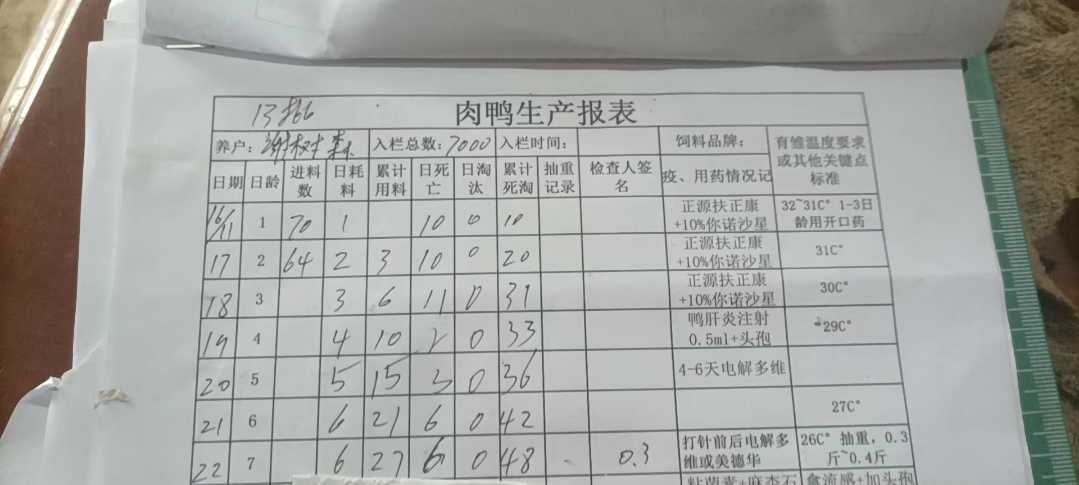 13批
肉鸭生产报表
养户: 谢树森 入栏总数: 7000 入栏时间: 饲料品牌: 育雏温度要求或其他关键点标准
日期 日龄 进料数 日耗料 累计用料 日死亡 日淘汰 累计死淘 抽重记录 检查人签名 疫、用药情况记
16/11 1 70 1 10 0 10 正源扶正康+10%你诺沙星 32~31C° 1-3日龄用开口药
17 2 64 2 3 10 0 20 正源扶正康+10%你诺沙星 31C°
18 3 3 6 11 0 31 正源扶正康+10%你诺沙星 30C°
19 4 4 10 2 0 33 鸭肝炎注射0.5ml+头孢 29C°
20 5 5 15 3 0 36 4-6天电解多维
21 6 6 21 6 0 42 27C°
22 7 6 27 6 0 48 0.3 打针前后电解多维或美德华 26C° 抽重，0.3斤~0.4斤
粘菌素+麻杏石 禽流感+加头孢